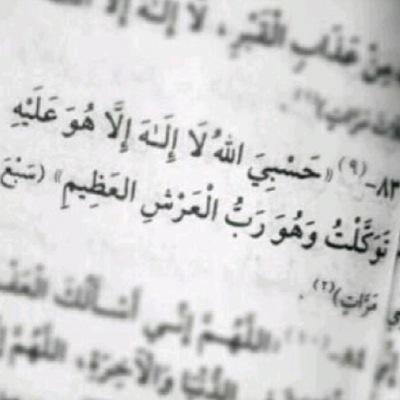 مِنْ عَذَابِ الْقَبْرِ، لَا إِلَهَ إِلَّا
ثَلاثَ مَرَّاتٍ)(١).
٨٣-(٩) «حَسْبِيَ اللهُ لَا إِلَـٰهَ إِلَّا هُوَ عَلَيْهِ
تَوَكَّلْتُ وَهُوَ رَبُّ الْعَرْشِ العَظِيمِ» (سَبْعَ
مَرَّاتٍ)(٢).
٨٤-(١٠) «اللَّهُمَّ إِنِّي أَسْأَلُكَ الْعَفْوَ
الدُّنْيَا وَالْآخِرَةِ، اللَّهُمَّ